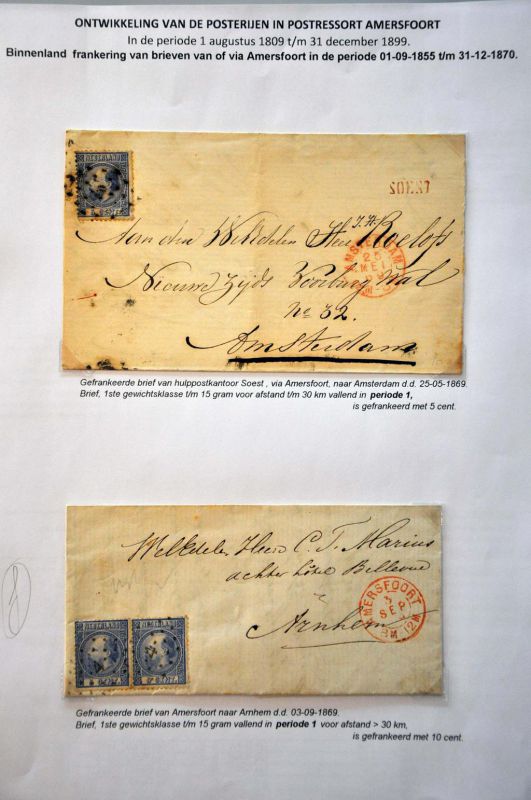 ONTWIKKELING VAN DE POSTERIJEN IN POSTRESSORT AMERSFOORT
In de periode 1 augustus 1809 t/m 31 december 1899.
Binnenland frankering van brieven van of via Amersfoort in de periode 01-09-1855 t/m 31-12-1870.
NEDERLAND
SOEST
Aan den WelEdelen Heer J. H. Roelofs
AMSTERDAM
25
MEI
Nieuwe Zijds Voorburg Wal
no 32.
Amsterdam
Gefrankeerde brief van hulppostkantoor Soest , via Amersfoort, naar Amsterdam d.d. 25-05-1869.
Brief, 1ste gewichtsklasse t/m 15 gram voor afstand t/m 30 km vallend in periode 1,
is gefrankeerd met 5 cent.
WelEdelen Heere C. T. Marius
achter hôtel Bellevue
Arnhem
AMERSFOORT
3
SEP
8M 12M
NEDERLAND NEDERLAND
Gefrankeerde brief van Amersfoort naar Arnhem d.d. 03-09-1869.
Brief, 1ste gewichtsklasse t/m 15 gram vallend in periode 1 voor afstand > 30 km,
is gefrankeerd met 10 cent.